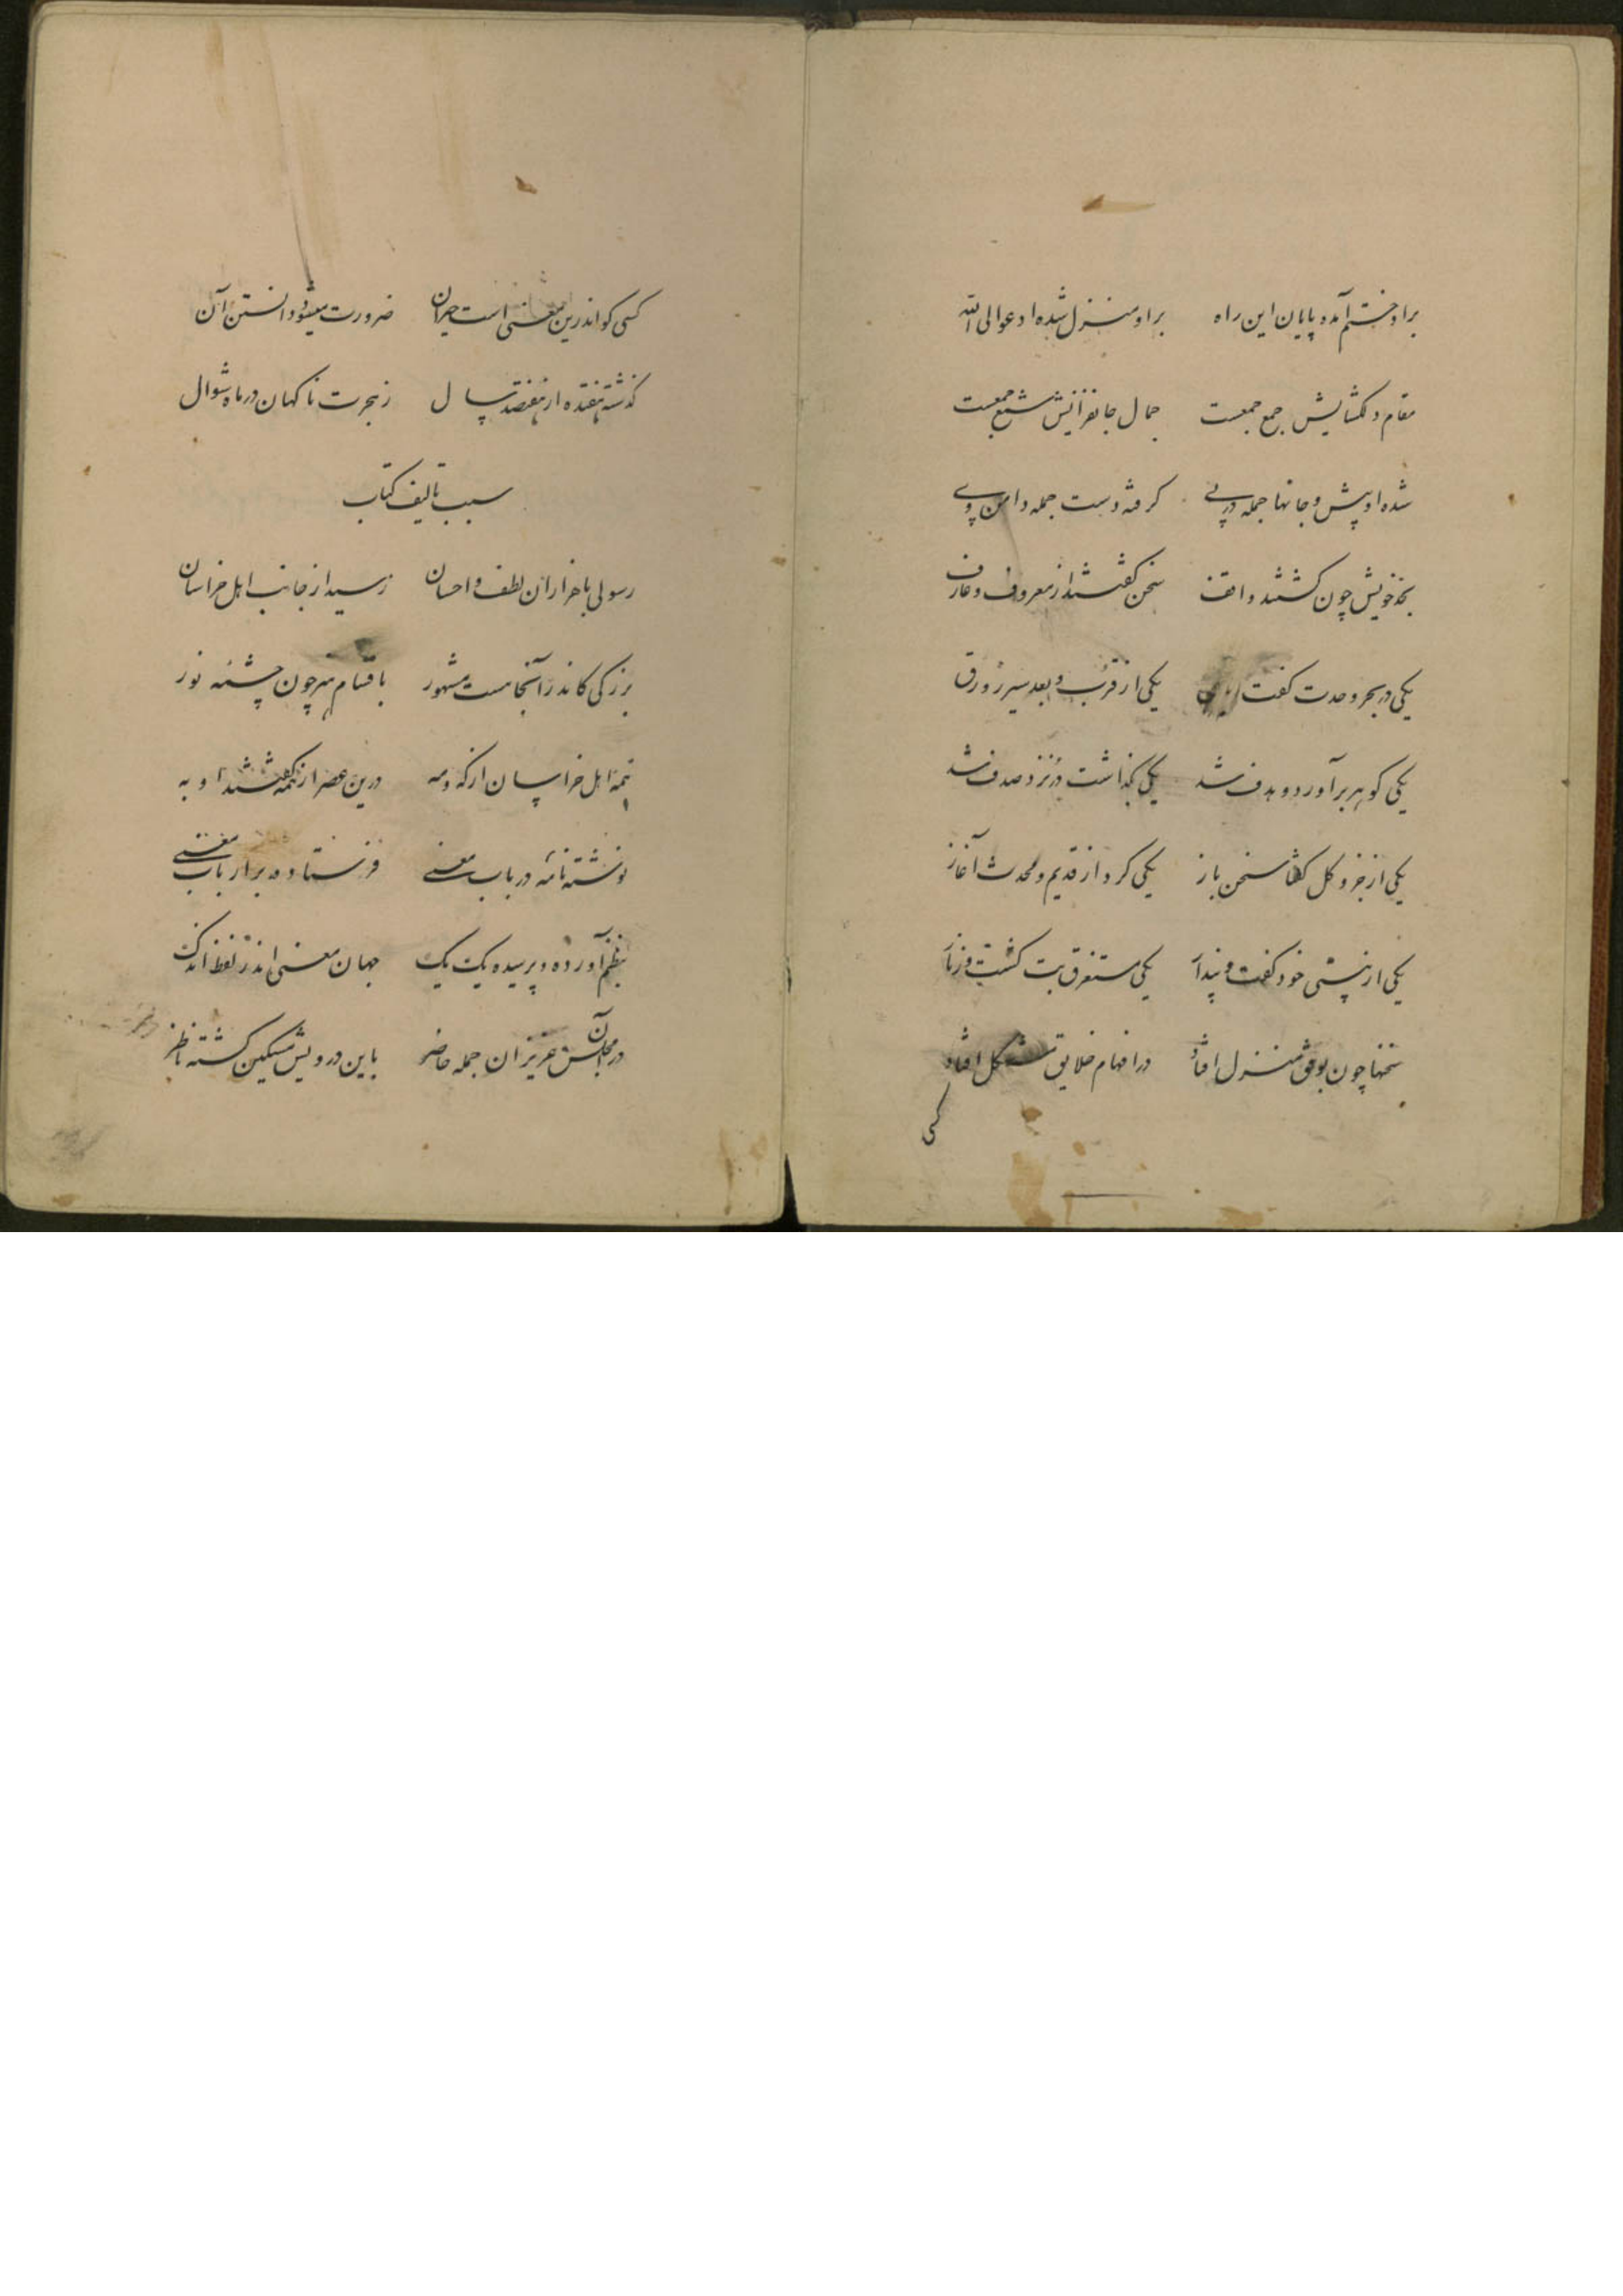 برو ختم آمده پایان این راه برو منزل شده ادعوا الی الله
مقام دلگشایش جمع جمعست جمال جانفزایش شمع جمعست
شده او پیش و جانها جمله در پی گرفته دست جمله دامن وی
بحد خویش چون گشتند واقف سخن گفتند از معروف و عارف
یکی در بحر وحدت گفت یکی از قرب و بعد سیر زورق
یکی گوهر برآورد و هدف شد یکی بگذاشت در نزد صدف شد
یکی از جزو و کل گفتا سخن باز یکی کرد از قدیم و محدث آغاز
یکی از هستی خود گفت و پندار یکی مستغرق بت گشت و زنار
سخنها چون بوفق منزل افتاد در افهام خلایق مشکل افتاد
کسی
کسی کو اندرین معنی است حیران ضرورت میشود دانستن آن
گذشته هفده از هفتصد سال ز هجرت ناگهان در ماه شوال
سبب تالیف کتاب
رسولی با هزاران لطف و احسان رسید از جانب اهل خراسان
بزرگی کاندر آنجا هست مشهور باقسام هنر چون چشمه نور
همه اهل خراسان از که و مه درین عصر از همه گفتند او به
نوشته نامه در باب معنی فرستاده بر ارباب معنی
بنظم آورده و پرسیده یک یک جهان معنی اندر لفظ اندک
در آن مجلس عزیزان جمله حاضر باین درویش مسکین گشته ناظر